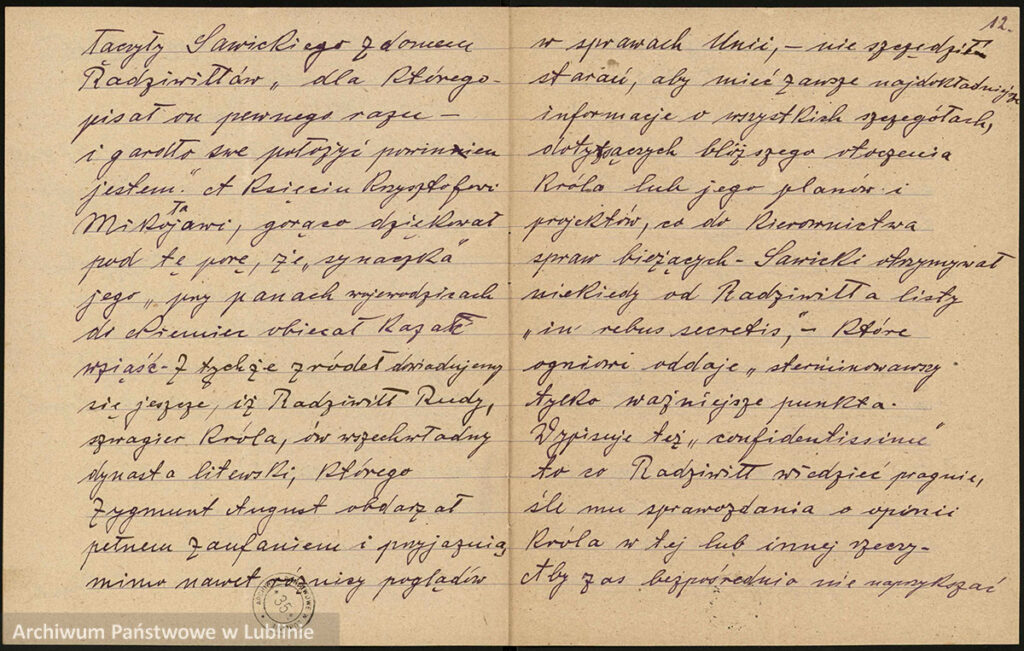 łączyły Sawickiego z domem
Radziwiłłów „ dla którego-
pisał on pewnego razu —
i gardło swe położyć powinien
jestem." A Księciu Krzysztofowi
Mikołajowi, gorąco dziękował
pod tę porę, że „synaczka"
jego „ przy panach wojewodzicach
do Niemiec obiecał kazać
wziąść- Z tychże źródeł dowiadujemy
się jeszcze, iż Radziwiłł Rudy,
szwagier Króla, ów wszechwładny
dynasta litewski, którego
Zygmunt August obdarzał
pełnem zaufaniem i przyjaźnią
mimo nawet różnicy poglądów
12.
w sprawach Unii, – nie szczędził
starań, aby mieć zawsze najdokładniejsze
informacje o wszystkich szczegółach,
dotyczących bliższego otoczenia
Króla lub jego planów i
projektów, co do kierownictwa
spraw bieżących – Sawicki otrzymywał
niekiedy od Radziwiłła listy
„in rebus secretis", – które
ogniowi oddaje „
tylko ważniejsze punkta.
Wypisuje też „ confidentissime"
to co Radziwiłł wiedzieć pragnie,
śle mu sprawozdania o opinii
Króla w tej lub innej rzeczy-
Aby zas bezpośrednio nie naprzykszać
35
Archiwum Państwowe w Lublinie